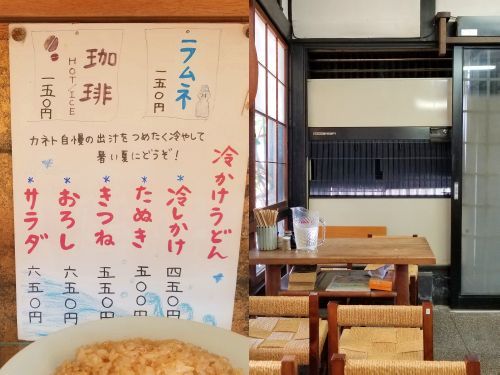 珈琲
HOT/ICE
一五〇円
ラムネ
一五〇円
カネト自慢の出汁をつめたく冷やして
暑い夏にどうぞ！
冷かけうどん
*冷しかけ 四五〇円
*たぬき 五〇〇円
*きつね 五五〇円
*おろし 六五〇円
*サラダ 六五〇円